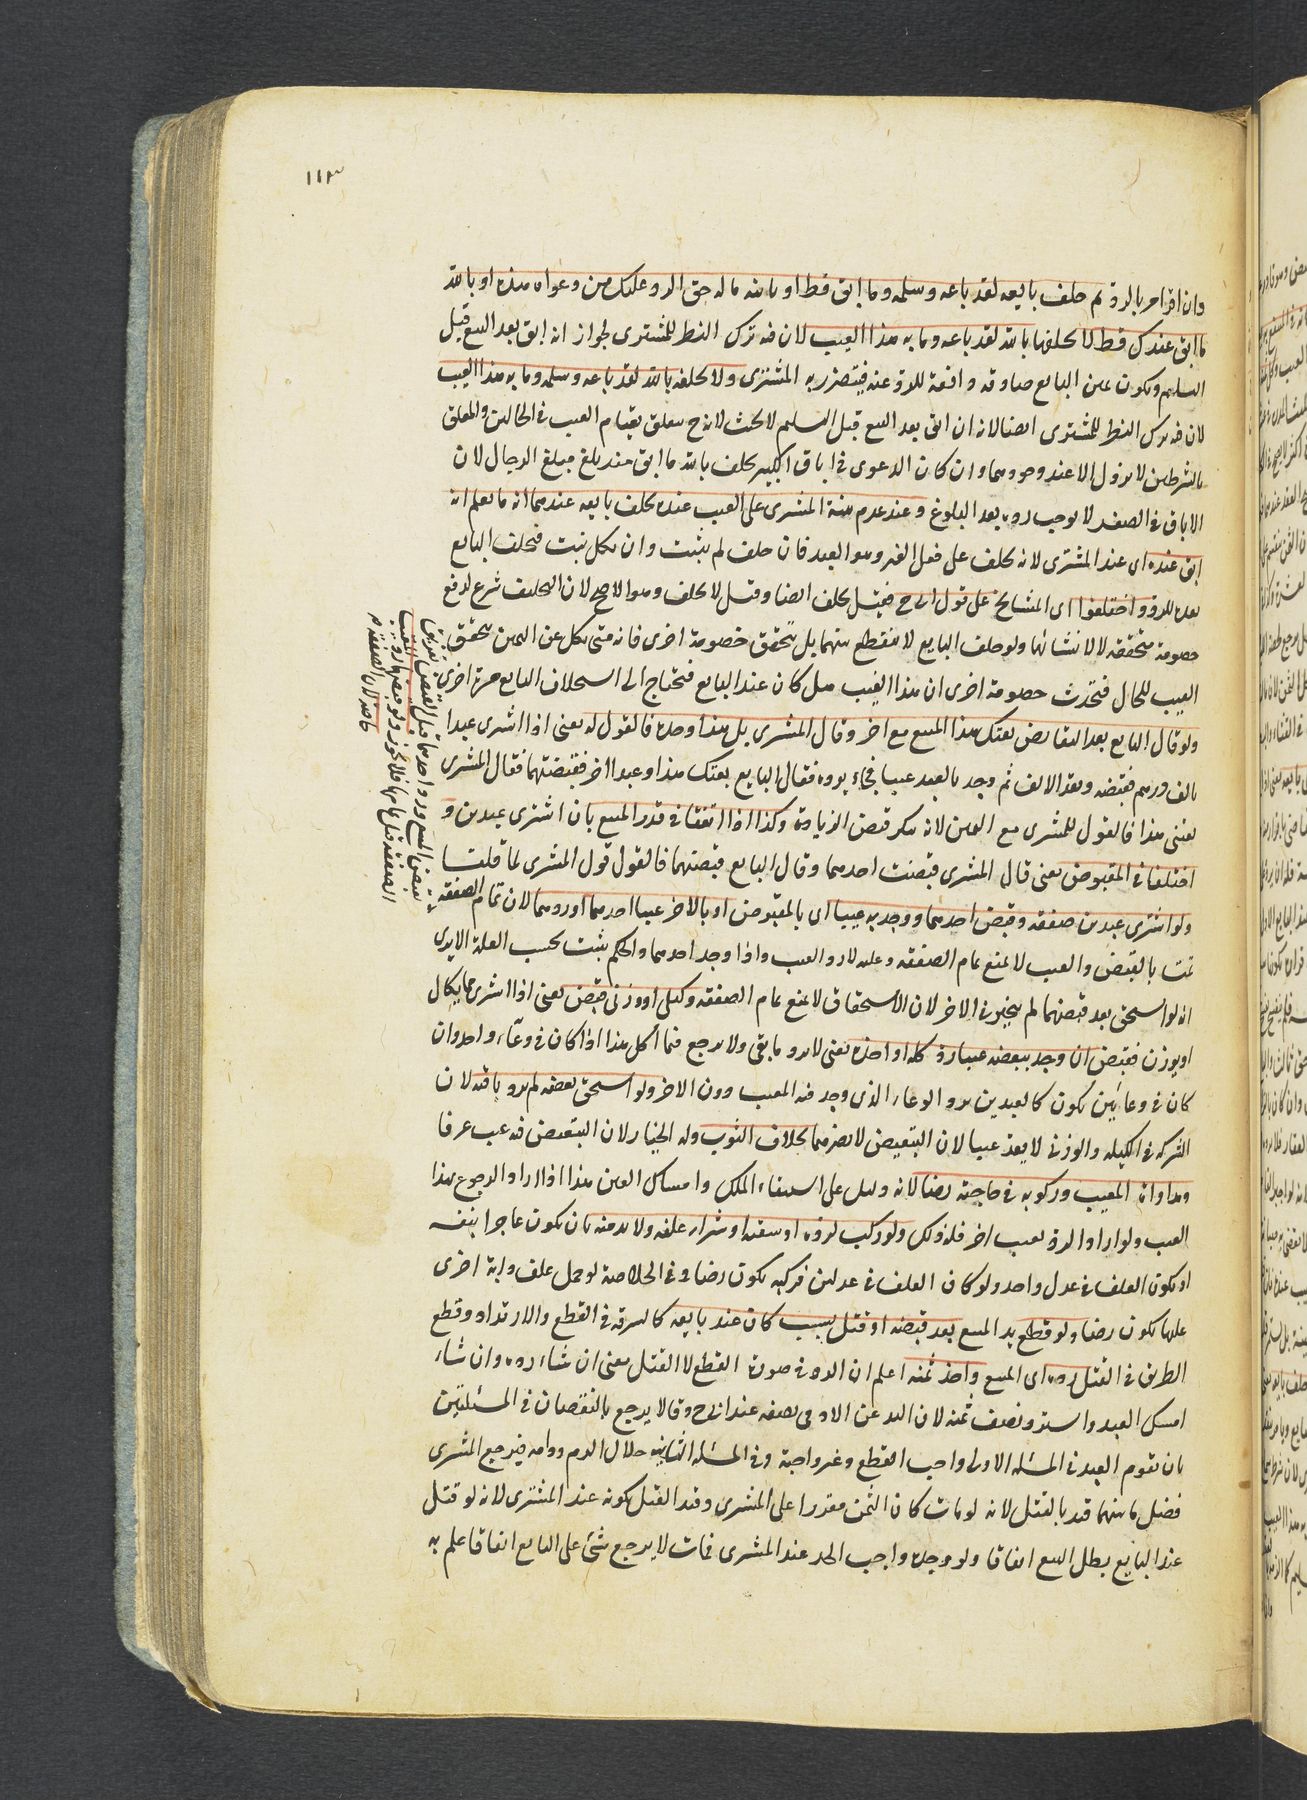 ١١٣
وان اقر احر بالرد ثم حلف بايعه لقد باعه وسلمه وما ابق قط او بالله ما له حق الرد عليك من دعواه هذه او بالله
ما ابق عندك قط لا يحلفها بالله لقد باعه وما به هذا العيب لان فيه ترك النظر للمشتري لجواز انه ابق بعد البيع قبل
التسليم ويكون يمين البايع صادقة دافعة للرد عنه فيتضرر به المشتري ولا يحلفه بالله لقد باعه وسلمه وما به هذا العيب
لان فيه ترك النظر للمشتري ايضا لانه ان ابق بعد البيع قبل التسليم لا يحنث لانه ح معلق بقيام العيب في الحالين والمعلق
بالشرطين لا ينزل الا عند وجودهما وان كان الدعوى في اباق الكبير يحلف بالله ما ابق منذ بلغ مبلغ الرجال لان
الاباق في الصغر لا يوجب رده بعد البلوغ وعند عدم بينة المشتري على العيب عنده يحلف بايعه عندهما انه ما يعلم انه
ابق عنده اى عند المشتري لانه يحلف على فعل الغير وهو العبد فان حلف لم يثبت وان نكل ثبت فيحلف البايع
بعده للرد واختلفوا اى المشايخ على قول ابي ح فقيل يحلف ايضا وقيل لا يحلف وهو الاصح لان التحليف شرع لدفع
خصومة متحققة لا لانشائها ولو حلف البايع لا تنقطع بينهما بل تحقق خصومة اخرى فانه متى نكل عن اليمين تحقق
العيب للحال فتحدث خصومة اخرى ان هذا العيب هل كان عند البايع فتحتاج الى استحلاف البايع مرة اخرى
ولو قال البايع بعد التقابض بعتك هذا المبيع مع اخر وقال المشتري بل هذا وحده فالقول له يعني اذا اشترى عبدا
بالف درهم فقبضه ونقد الالف ثم وجد بالعبد عيبا فجاء يرده فقال البايع بعتك هذا وعبدا اخر فقبضتهما فقال المشتري
بعتني هذا فالقول للمشتري مع اليمين لانه منكر قبض الزيادة وكذا اذا اتفقا في قدر المبيع بان اشترى عبدين و
اختلفا في المقبوض يعني قال المشتري قبضت احدهما وقال البايع قبضتهما فالقول قول المشتري لما قلنا
ولو اشترى عبدين صفقة وقبض احدهما ووجد به عيبا اى بالمقبوض او بالاخر عيبا اخذهما او ردهما لان تمام الصفقة
تمت بالقبض والعيب لا يمنع تمام الصفقة وعليه لا رد العيب واذا وجد احدهما والحكم يثبت بحسب العلة الا يرى
انه لو استحق بعد قبضهما لم يتخير في الاخر لان الاستحقاق لا يمنع تمام الصفقة وكيلي او وزني قبض يعني اذا اشترى مما يكال
او يوزن فقبض ان وجد ببعضه عيبا رد كله او اخذه يعني لا يرد ما بقي ولا يرجع فيما اكل هذا اذا كان في وعاء واحد وان
كان في وعائين يكون كالعبدين يرد الوعاء الذي وجد فيه المعيب دون الاخر ولو استحق بعضه لم يرد باقيه لان
الشركة في الكيلي والوزني لا يعد عيبا لان التبعيض لا يضرهما بخلاف الثوب وله الخيار لان التبعيض فيه عيب عرفا
ومداواة المعيب وركوبه في حاجته رضا لانه دليل على استبقاء الملك وامساك العين هذا اذا اراد الرجوع بهذا
العيب ولو اراد الرد بعيب اخر فله ذلك ولو ركب لرده او سقيه او شراء علفه ولا بد منه بان يكون عاجزا بنفسه
او يكون العلف في عدل واحد ولو كان العلف في عدلين فركبه يكون رضا وفي الخلاصة لو حمل علف دابة اخرى
عليها يكون رضا ولو قطع يد المبيع بعد قبضه او قتل بسبب كان عند بايعه كالسرقة في القطع والارتداد وقطع
الطريق في القتل رده اى المبيع واخذ ثمنه اعلم ان الرد في صورة القطع لا القتل يعني ان شاء رده وان شاء
امسك العبد واسترد نصف ثمنه لان اليد عن الادمي نصفه عند ابي ح وقالا يرجع بالنقصان في المسئلتين
بان تقوم العبد في المسئلة الاولى واجب القطع وغير واجبه وفي المسئلة الثانية حلال الدم وحرامه فيرجع المشتري
فضل ما بينهما قيد بالقتل لانه لو مات كان الثمن مقدرا على المشتري وقيد القتل بكونه عند المشتري لانه لو قتل
عند البايع بطل البيع اتفاقا ولو وجده واجب الحد عند المشتري فمات لا يرجع بشئ على البايع اتفاقا علم به